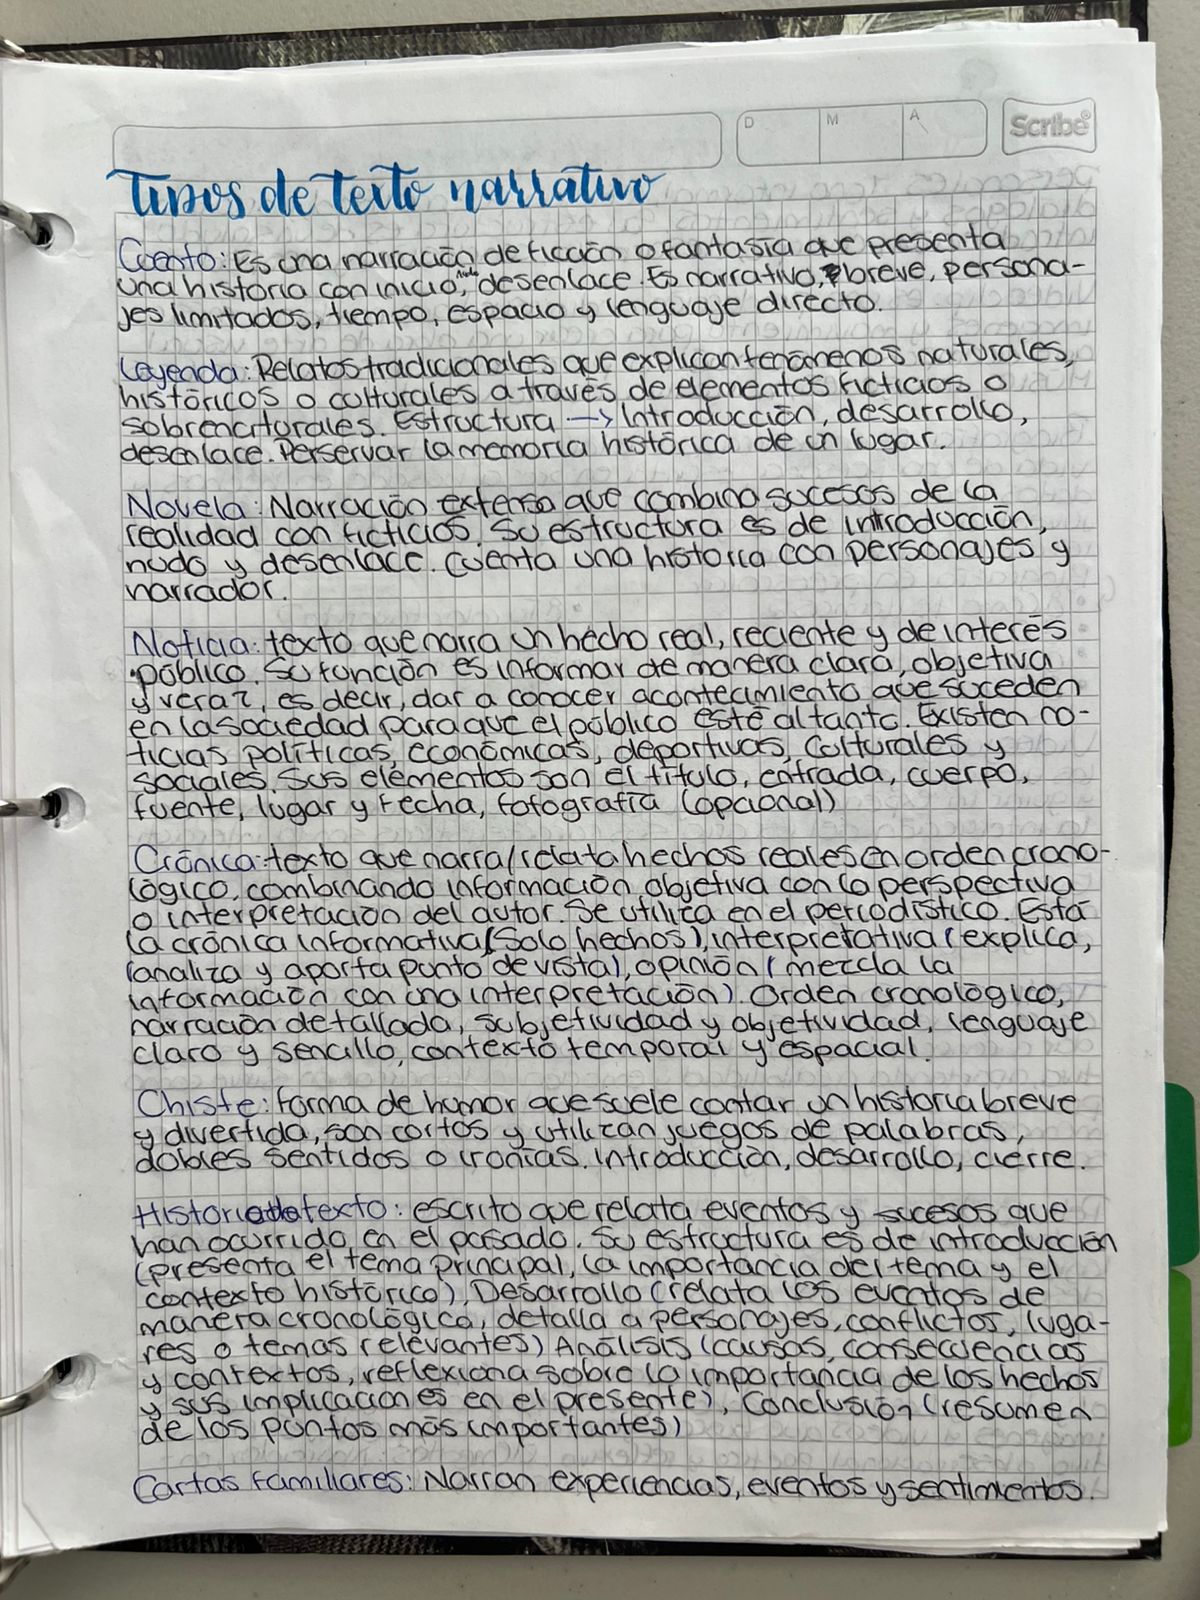 D M A Scribe
Tipos de texto narrativo
Cuento: Es una narración de ficción o fantasía que presenta
una historia con inicio, nudo, desenlace. Es narrativo, breve, persona-
jes limitados, tiempo, espacio y lenguaje directo.
Leyenda: Relatos tradicionales que explican fenómenos naturales,
históricos o culturales a través de elementos ficticios o
sobrenaturales. Estructura → Introducción, desarrollo,
desenlace. Perservar la memoria histórica de un lugar.
Novela: Narración extensa que combina sucesos de la
realidad con ficticios. Su estructura es de introducción,
nudo y desenlace. Cuenta una historia con personajes y
narrador.
Noticia: texto que narra un hecho real, reciente y de interés
público. Su función es informar de manera clara, objetiva
y veraz, es decir, dar a conocer acontecimiento que suceden
en la sociedad para que el público esté al tanto. Existen no-
ticias políticas, económicas, deportivas, culturales y
sociales. Sus elementos son el título, entrada, cuerpo,
fuente, lugar y fecha, fotografía (opcional)
Crónica: texto que narra/relata hechos reales en orden crono-
lógico, combinando información objetiva con la perspectiva
o interpretación del autor. Se utiliza en el periodístico. Está
la crónica informativa (Solo hechos), interpretativa (explica,
(analiza y aporta punto de vista), opinión (mezcla la
información con una interpretación). Orden cronológico,
narración detallada, subjetividad y objetividad, lenguaje
claro y sencillo, contexto temporal y espacial.
Chiste: forma de humor que suele contar un historia breve
y divertida, son cortos y utilizan juegos de palabras,
dobles sentidos o ironías. Introducción, desarrollo, cierre.
Historia texto: escrito que relata eventos y sucesos que
han ocurrido en el pasado. Su estructura es de introducción
(presenta el tema principal, la importancia del tema y el
contexto histórico), Desarrollo (relata los eventos de
manera cronológica, detalla a personajes, conflictos, luga-
res o temas relevantes) Análisis (causas, consecuencias
y contextos, reflexiona sobre la importancia de los hechos
y sus implicaciones en el presente), Conclusión (resumen
de los puntos más importantes)
Cartas familiares: Narran experiencias, eventos y sentimientos.